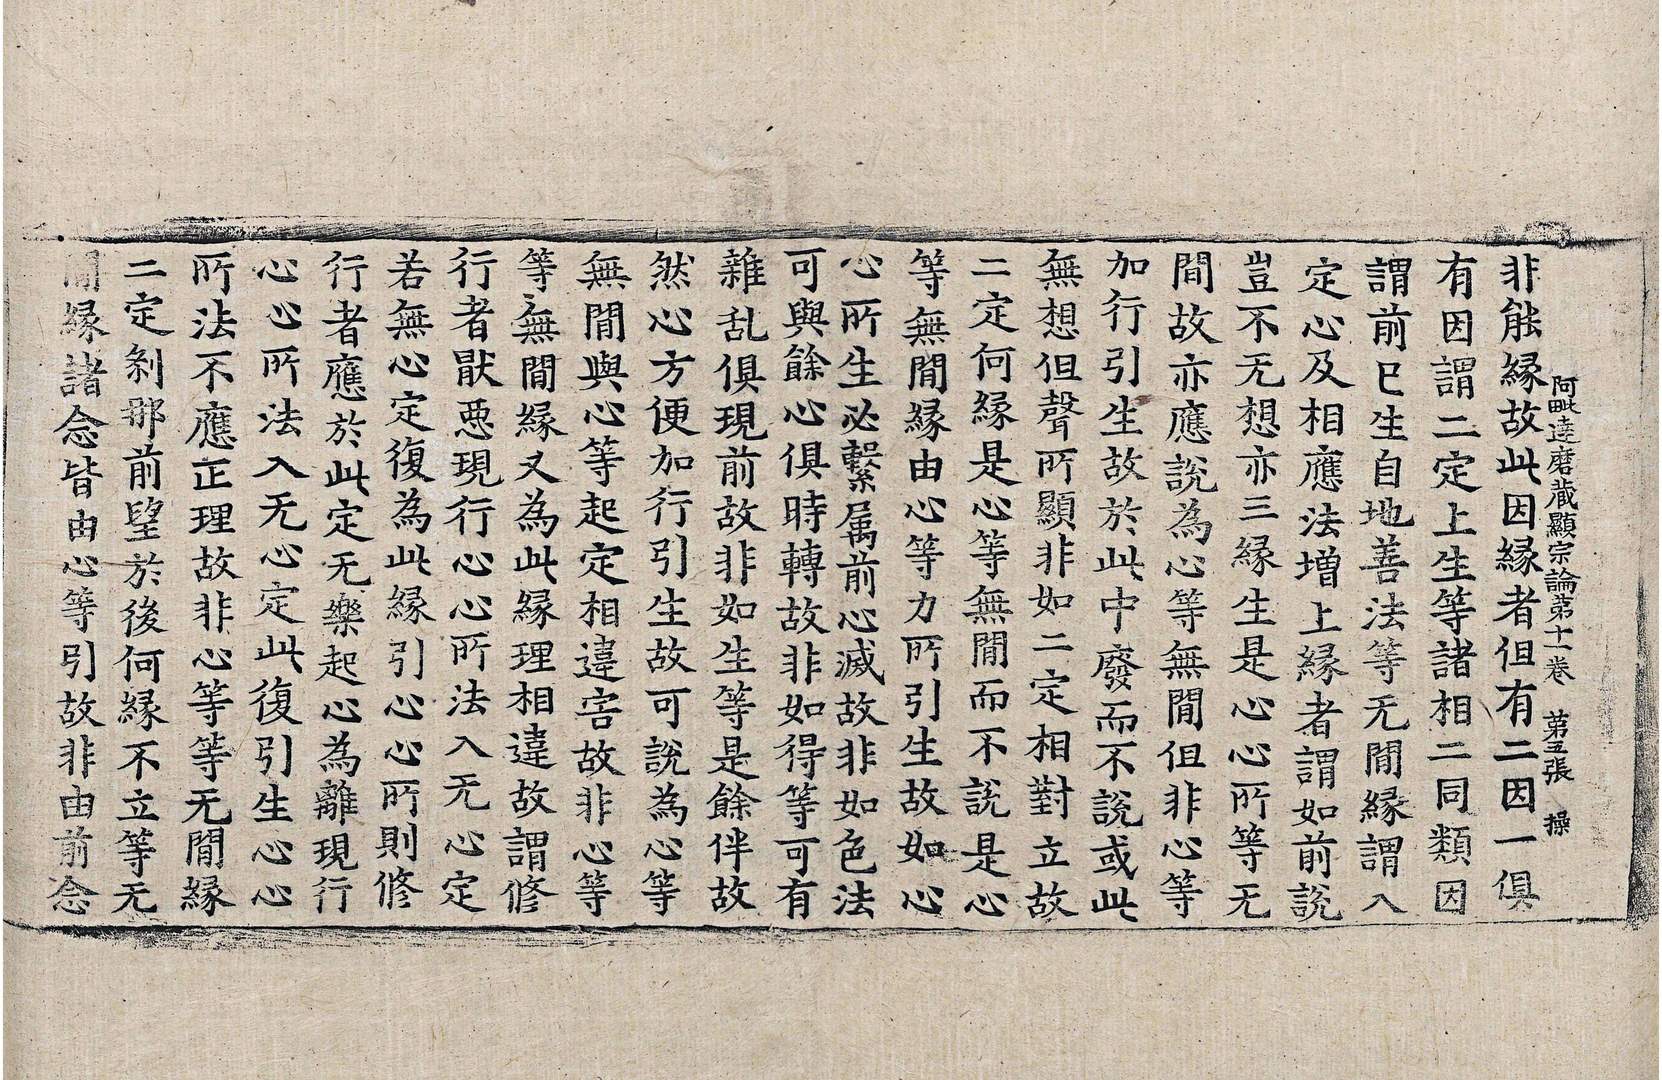 阿毗達磨藏顯宗論第十一卷 第五張 操
非能緣故此因緣者但有二因一俱
有因謂二定上生等諸相二同類因
謂前已生自地善法等无閒緣謂入
定心及相應法增上緣者謂如前說
豈不无想亦三緣生是心心所等无
閒故亦應說為心等無閒但非心等
加行引生故於此中廢而不說或此
無想但聲所顯非如二定相對立故
二定何緣是心等無閒而不說是心
等無閒緣由心等力所引生故如心
心所生必繫属前心滅故非如色法
可與餘心俱時轉故非如得等可有
雜乱俱現前故非如生等是餘伴故
然心方便加行引生故可說為心等
無閒與心等起定相違害故非心等
等無閒緣又為此緣理相違故謂修
行者猒惡現行心心所法入无心定
若無心定復為此緣引心心所則修
行者應於此定无樂起心為離現行
心心所法入无心定此復引生心心
所法不應正理故非心等等无閒緣
二定剎那前望於後何緣不立等无
閒緣諸念皆由心等引故非由前念